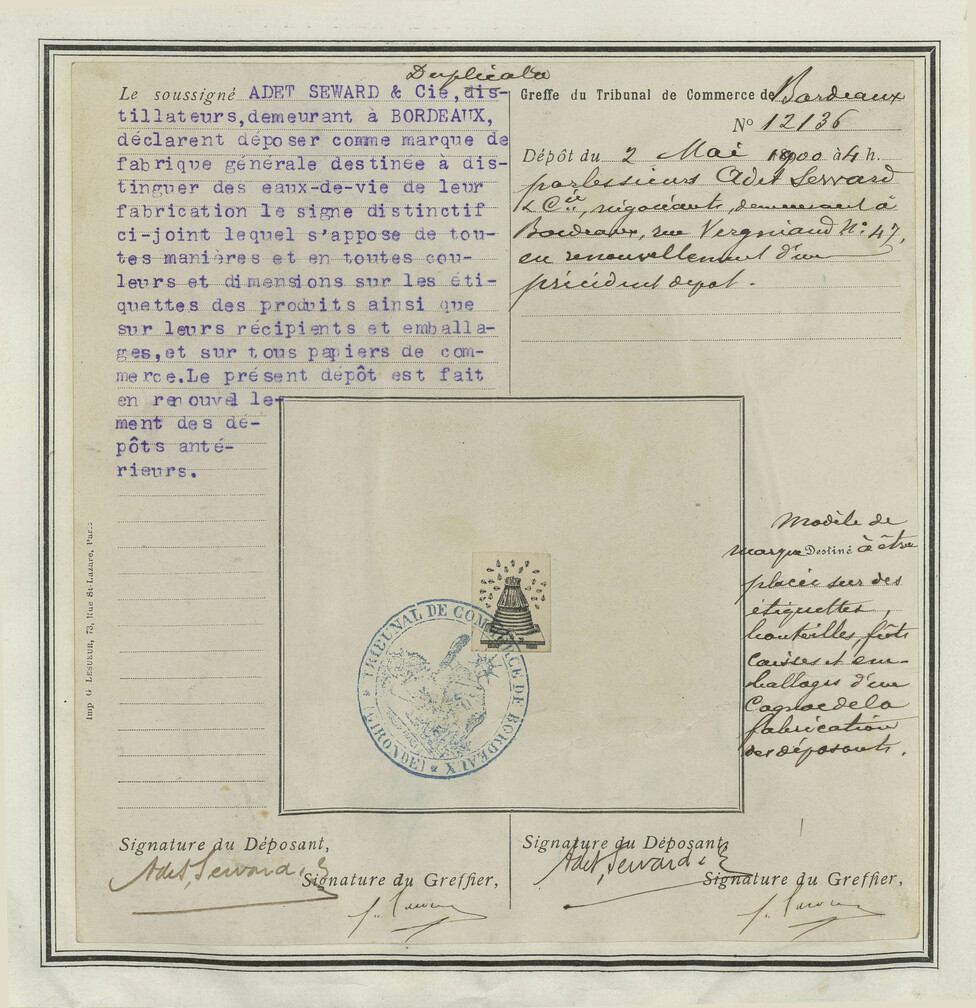 Duplicata
Le soussigné ADET SEWARD & Cie, dis-
tillateurs, demeurant à BORDEAUX,
déclarent déposer comme marque de
fabrique générale destinée à dis-
tinguer des eaux-de-vie de leur
fabrication le signe distinctif
ci-joint lequel s'appose de tou-
tes manières et en toutes cou-
leurs et dimensions sur les éti-
quettes des produits ainsi que
sur leurs récipients et emballa-
ges, et sur tous papiers de com-
merce. Le présent dépôt est fait
en renouvel le-
ment des dé-
pôts anté-
rieurs.
Greffe du Tribunal de Commerce de Bordeaux
No 12136
Dépôt du 2 Mai 1900 à 4 h.
par les sieurs Adet Seward
& Cie, négociants, demeurant à
Bordeaux, rue Vergniaud No 47,
en renouvellement d'un
précédent depot.
Modèle de
marque Destiné à être
placée sur des
étiquettes,
bouteilles, fûts
caisses et em-
ballages d'un
Cognac de la
fabrication
des déposants.
TRIBUNAL DE COMMERCE DE BORDEAUX
* (GIRONDE) *
Imp G LESUEUR, 73, Rue St-Lazare, Paris
Signature du Déposant,
Adet, Seward &
Signature du Greffier,
Signature du Déposant,
Adet, Seward &
Signature du Greffier,